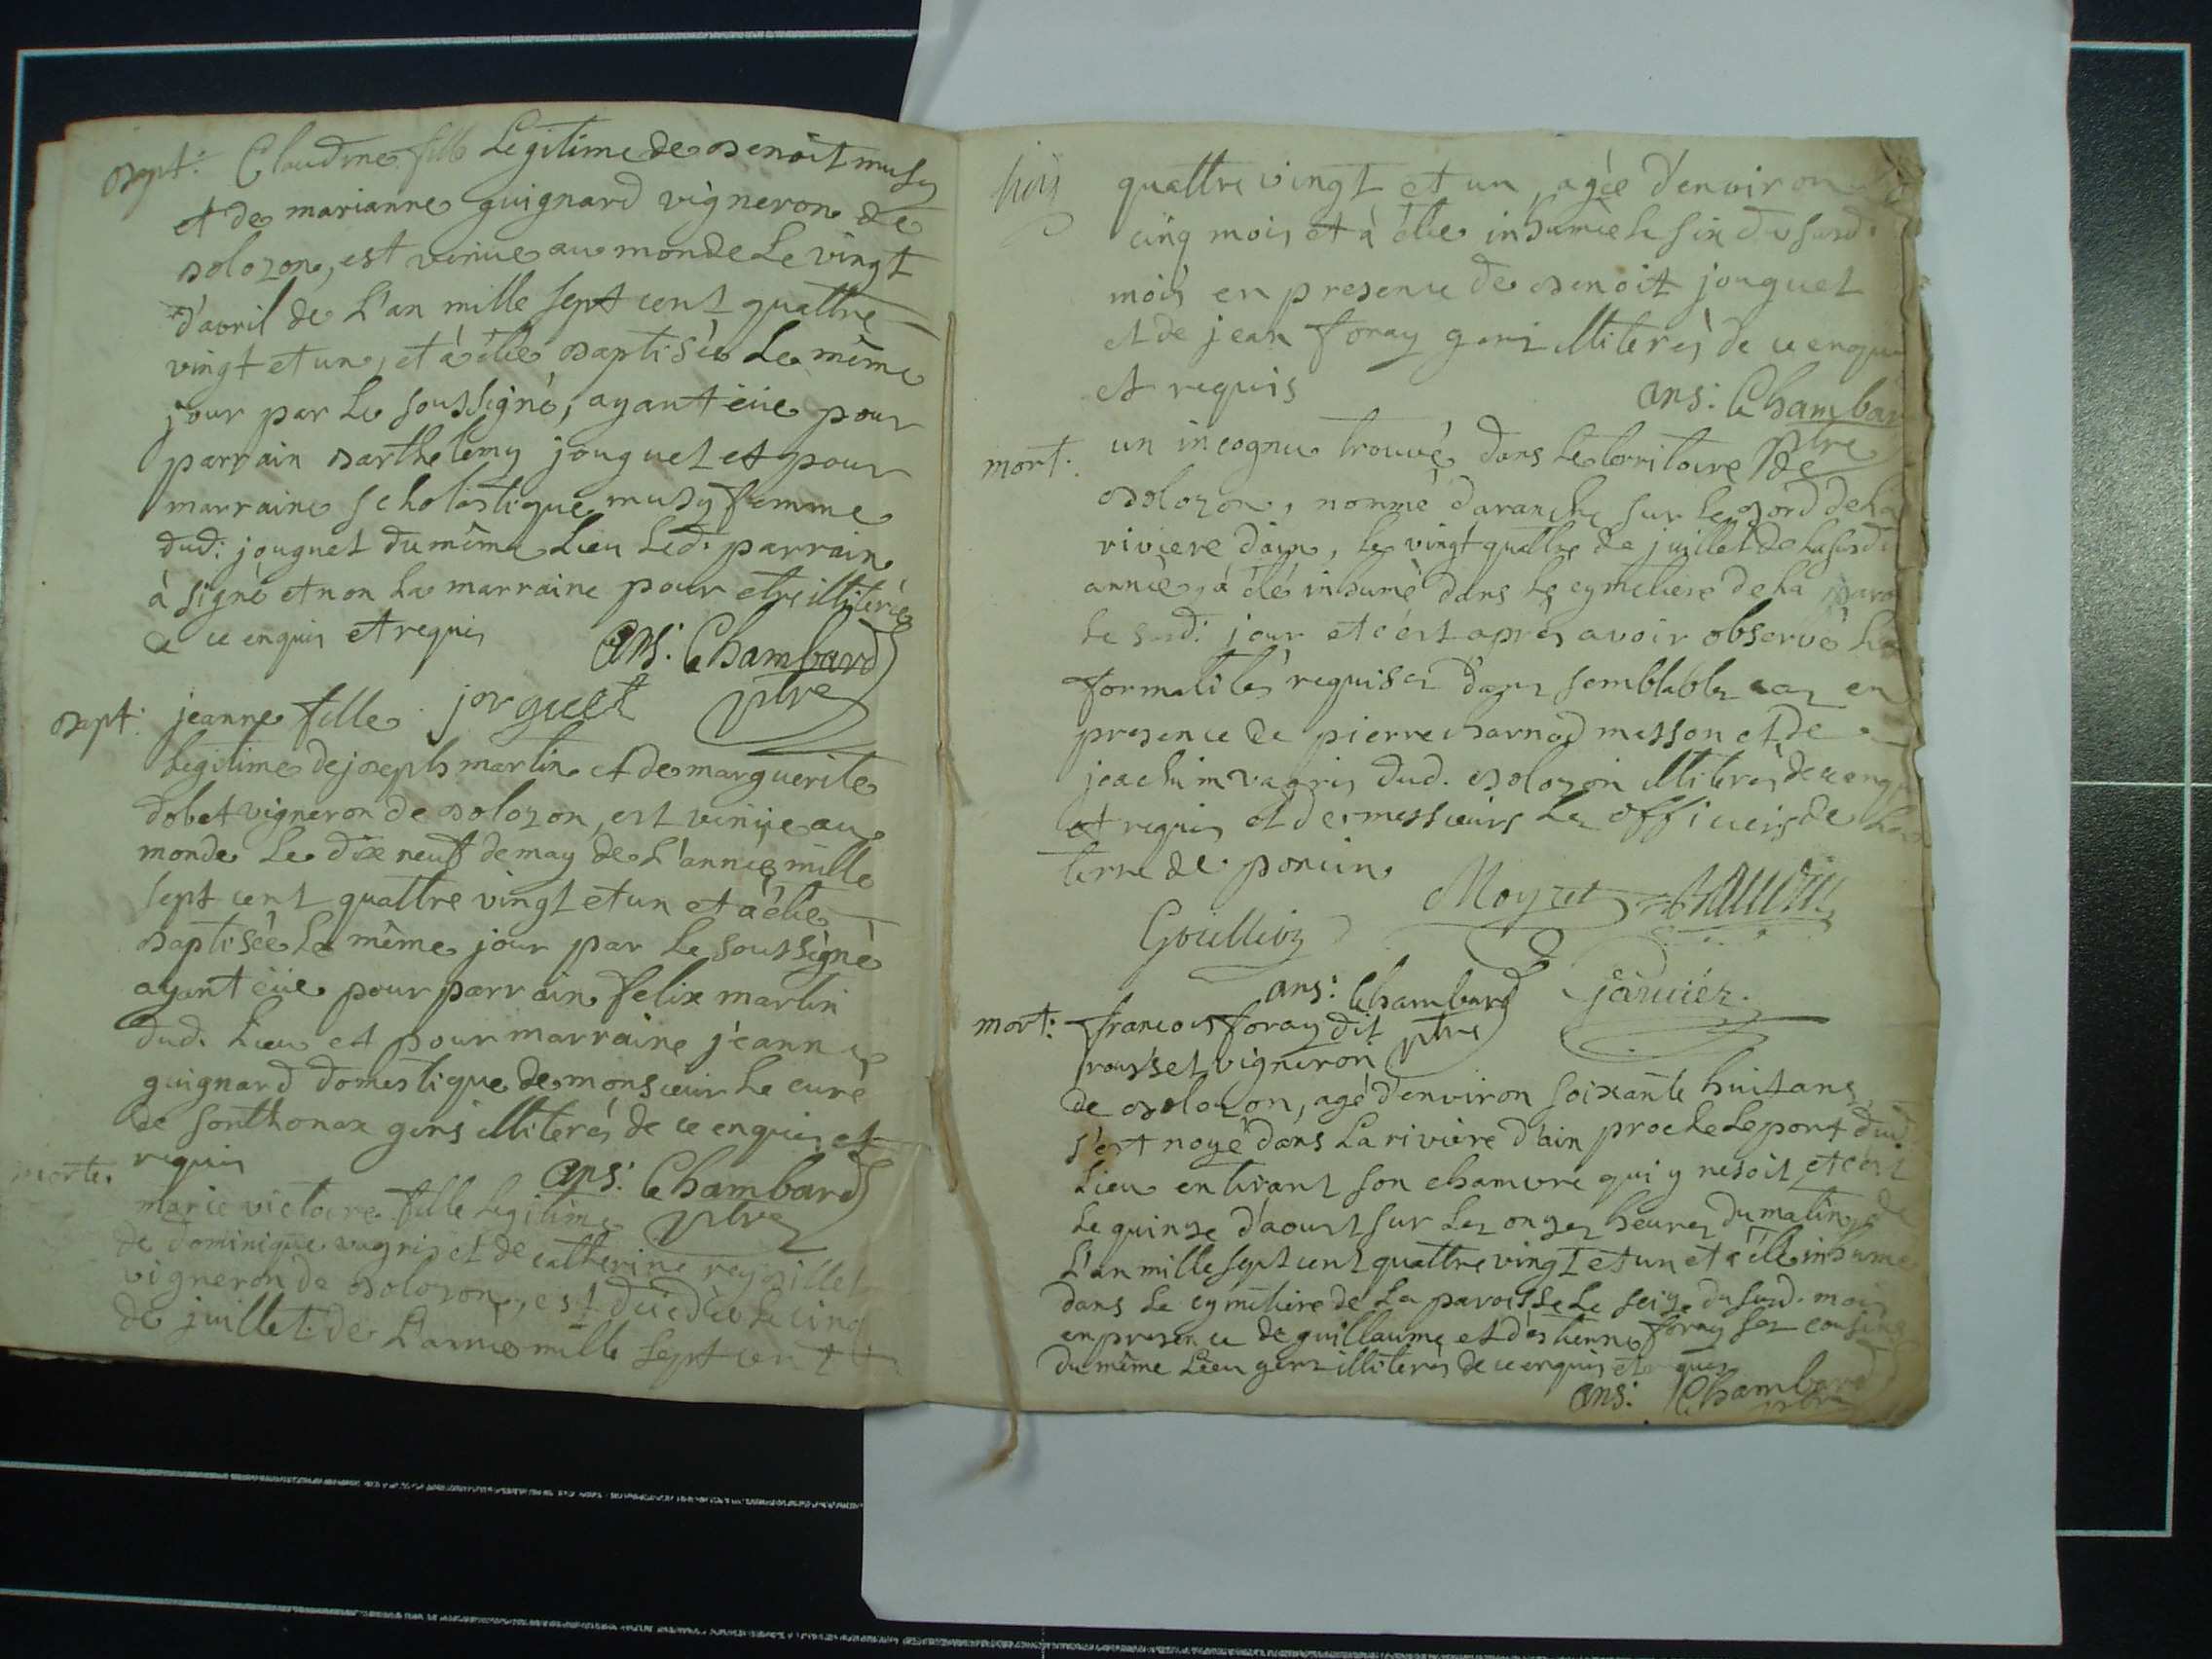 bapt: Claudine fille Legitime de benoit musy
et de marianne guignard vigneron de
bolozon, est venüe au monde Le vingt
d'avril de L'an mille sept cent quattre
vingt et un, et à étée baptisée Le même
jour par Le soussigné, ayant eüe pour
parrain barthelemy jouguet et pour
marraine scholastique musy femme
dud: jouguet du même Lieu Led. parrain
à signé et non La marraine pour etre illiterée
de ce enquis et requis ans: Chambard
jorguet ptre
bapt: jeanne fille
Legitime de joseph martin et de marguerite
dobet vigneron de bolozon, est venüe au
monde Le dix neuf de may de L'année mille
sept cent quattre vingt et un et à étée
baptisée Le même jour par Le soussigné
ayant eüe pour parrain felix martin
dud. Lieu et pour marraine jeanne
guignard domestique de monsieur Le curé
de sonthonax gens illiterés de ce enquis et
requis ans: Chambard
ptre
morte. marie victoire fille Legitime
de dominique vagris et de catherine reybillet
vigneron de bolozon, est decedée Le cinq
de juillet de L'année mille sept cent
quattre vingt et un, agée d'environ
cinq mois et à étée inhumée Le six du susd:
mois en presence de benoit jouguet
et de jean foray gens illiterés de ce enquis
et requis ans: Chambar
ptre
mort: un incognu trouvé dans Le territoire de
bolozon, nommé d'aranche sur Le bord de La
riviere d'ain, Le vingt quattre de juillet de La susd:
année, à été inhumé dans Le cymetiere de La paro
Le susd: jour et c'est aprés avoir observé Les
formalités requises dans semblables cas en
presence de pierre charnod masson et de
joachim vagris dud. bolozon illiterés de ce enq
et requis et de messieurs Les officiers de La
terre de poncin
Moyret
Goillioz
ans: Chambard janviez
ptre
mort: francois foray dit
rousset vigneron
de bolozon, agé d'environ soixante huit ans
s'est noyé dans La riviere d'ain proche Le pont dud.
Lieu en tirant son chamvre qui y nesoit et c'est
Le quinze d'aoust sur Les onzes heures du matin de
L'an mille sept cent quattre vingt et un et à été inhumé
dans Le cymetiere de La paroisse Le seize du susd. mois
en presence de guillaume et d'estienne foray ses cousins
du même Lieu gens illiterés de ce enquis et requis
ans: Chambard
ptre